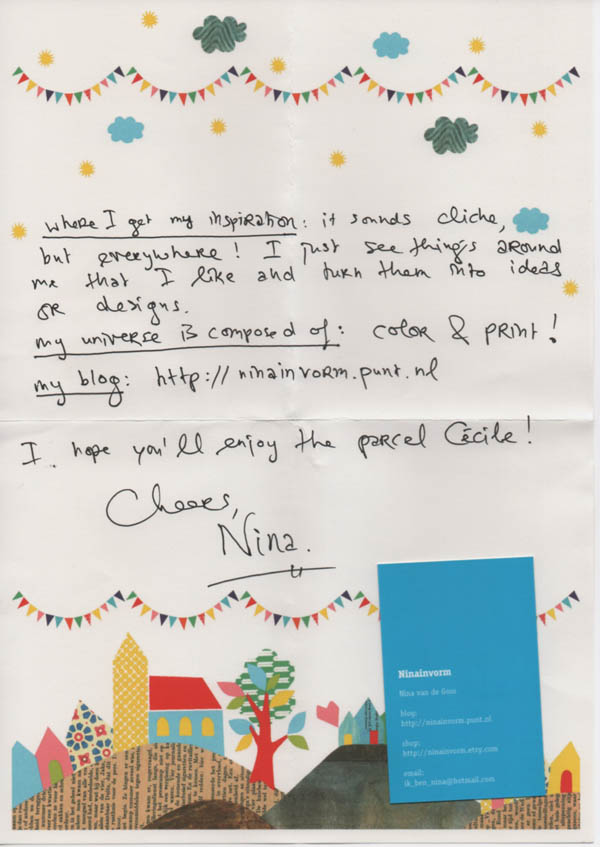 where I get my inspiration: it sounds cliche,
but everywhere! I just see things around
me that I like and turn them into ideas
or designs.
my universe is composed of: color & print!
my blog: http://ninainvorm.punt.nl
I hope you'll enjoy the parcel Cécile!
Cheers,
Nina.
Ninainvorm
Nina van de Goor
blog:
http://ninainvorm.punt.nl
shop:
http://ninainvorm.etsy.com
email:
ik_ben_nina@hotmail.com